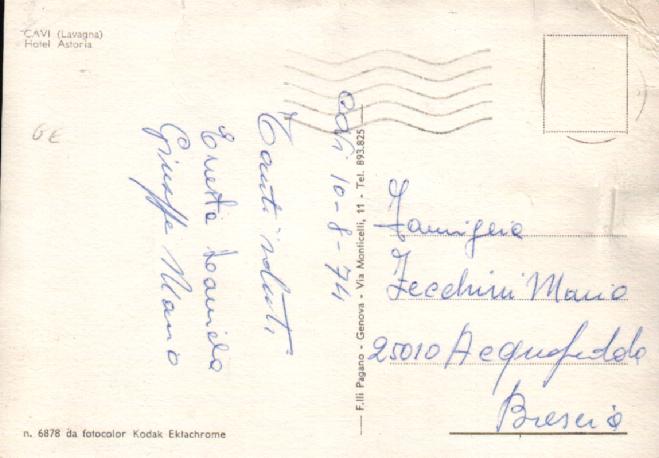 CAVI (Lavagna)
Hotel Astoria
6€
Cavi 10-8-74
Tanti saluti
Enesta Daniela
Giuseppe Mario
F.lli Pagano - Genova - Via Monticelli, 11 - Tel. 893.825
Famiglia
Zecchini Mario
25010 Acquafredda
Brescia
n. 6878 da fotocolor Kodak Ektachrome